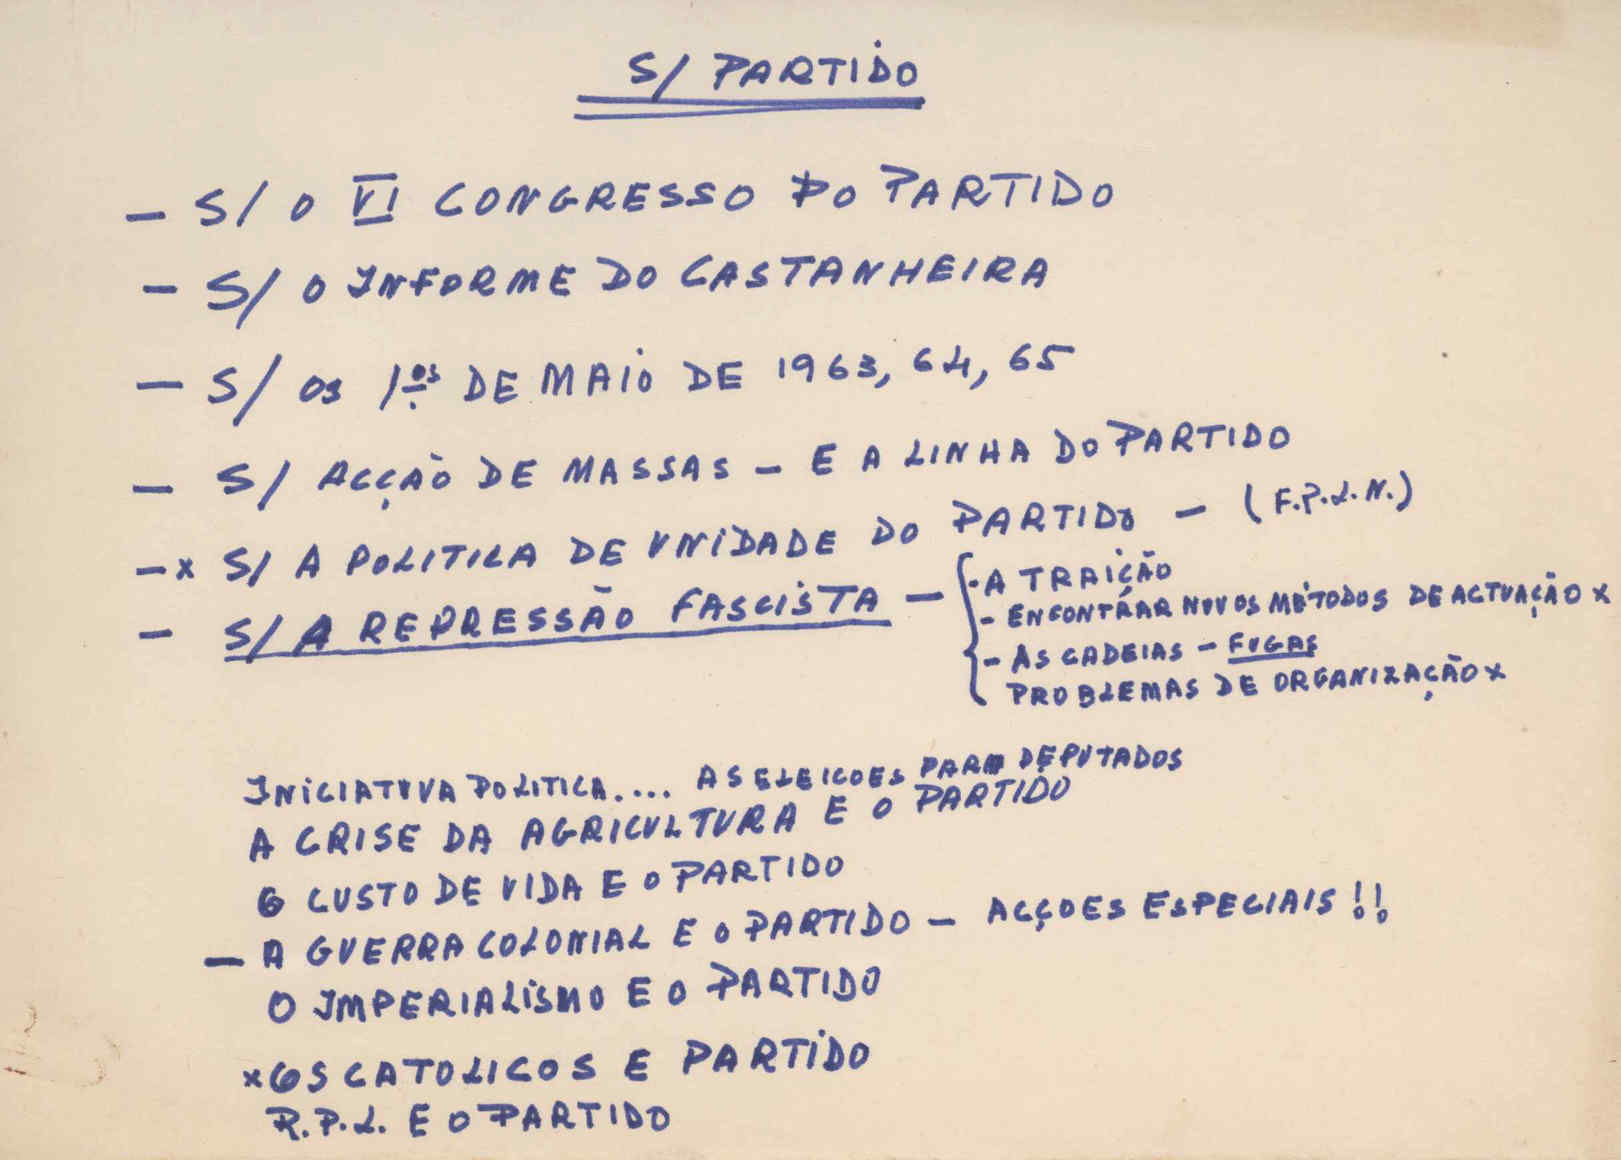 S/ PARTIDO
— S/ O VI CONGRESSO DO PARTIDO
— S/ O INFORME DO CASTANHEIRA
— S/ OS 1.os DE MAIO DE 1963, 64, 65
— S/ ACÇÃO DE MASSAS — E A LINHA DO PARTIDO
—x S/ A POLITICA DE UNIDADE DO PARTIDO — (F.P.L.N.)
— S/ A REPRESSÃO FASCISTA — { - A TRAIÇÃO
- ENCONTRAR NOVOS MÉTODOS DE ACTUAÇÃO x
- AS CADEIAS - FUGAS
PROBLEMAS DE ORGANIZAÇÃO x
INICIATIVA POLITICA.... AS ELEICOES PARA DEPUTADOS
A CRISE DA AGRICULTURA E O PARTIDO
O CUSTO DE VIDA E O PARTIDO
— A GUERRA COLONIAL E O PARTIDO — ACÇOES ESPECIAIS!!
O IMPERIALISMO E O PARTIDO
x OS CATOLICOS E PARTIDO
R.P.L. E O PARTIDO